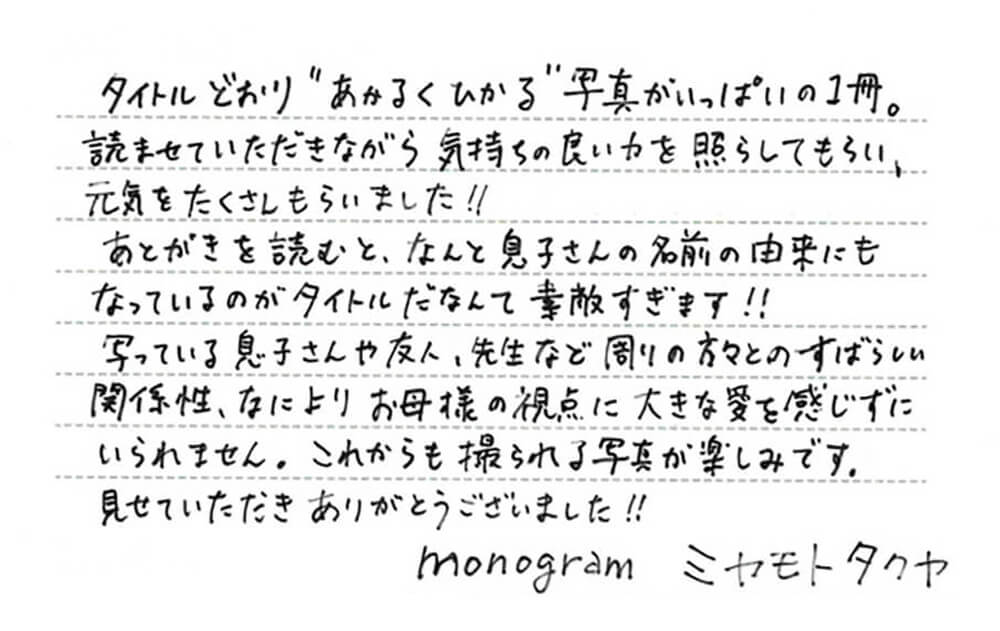 タイトルどおり"あかるくひかる"写真がいっぱいの1冊。
読ませていただきながら気持ちの良い力を照らしてもらい、
元気をたくさんもらいました!!
あとがきを読むと、なんと息子さんの名前の由来にも
なっているのがタイトルだなんて素敵すぎます!!
写っている息子さんや友人、先生など周りの方々とのすばらしい
関係性、なによりお母様の視点に大きな愛を感じずに
いられません。これからも撮られる写真が楽しみです。
見せていただきありがとうございました!!
monogram ミヤモトタクヤ